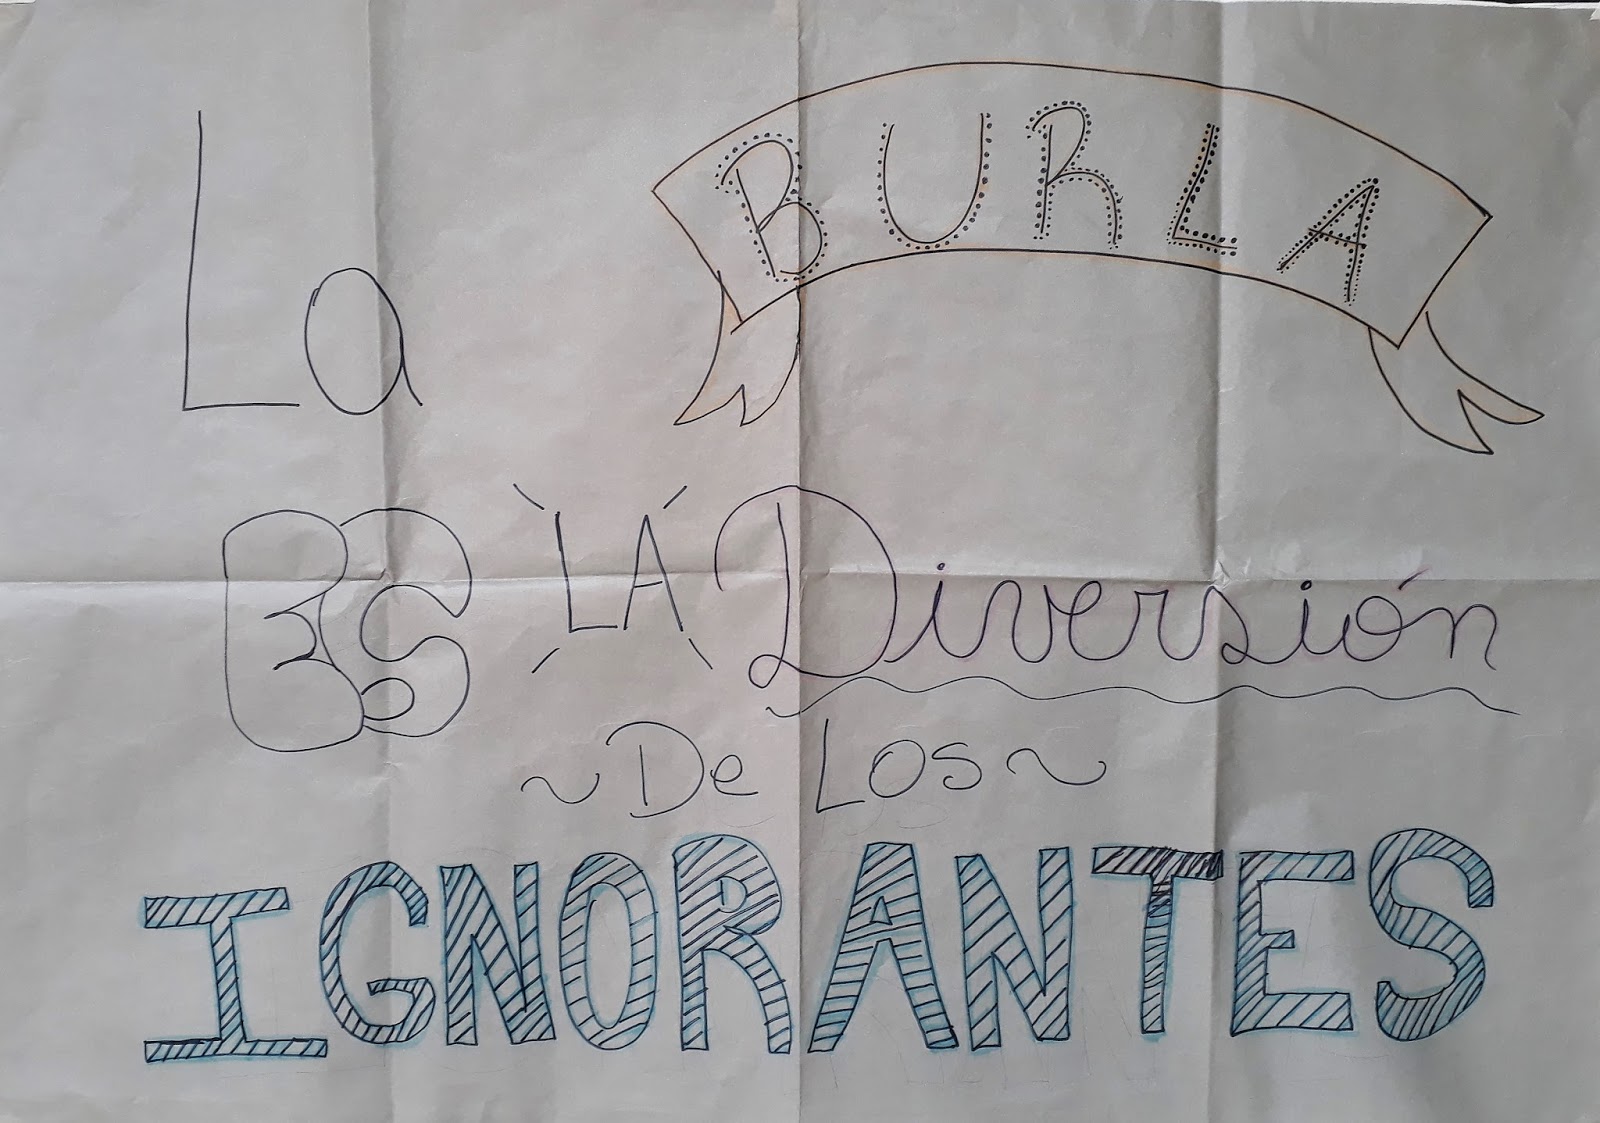 La BURLA
ES LA Diversión
~De Los~
IGNORANTES